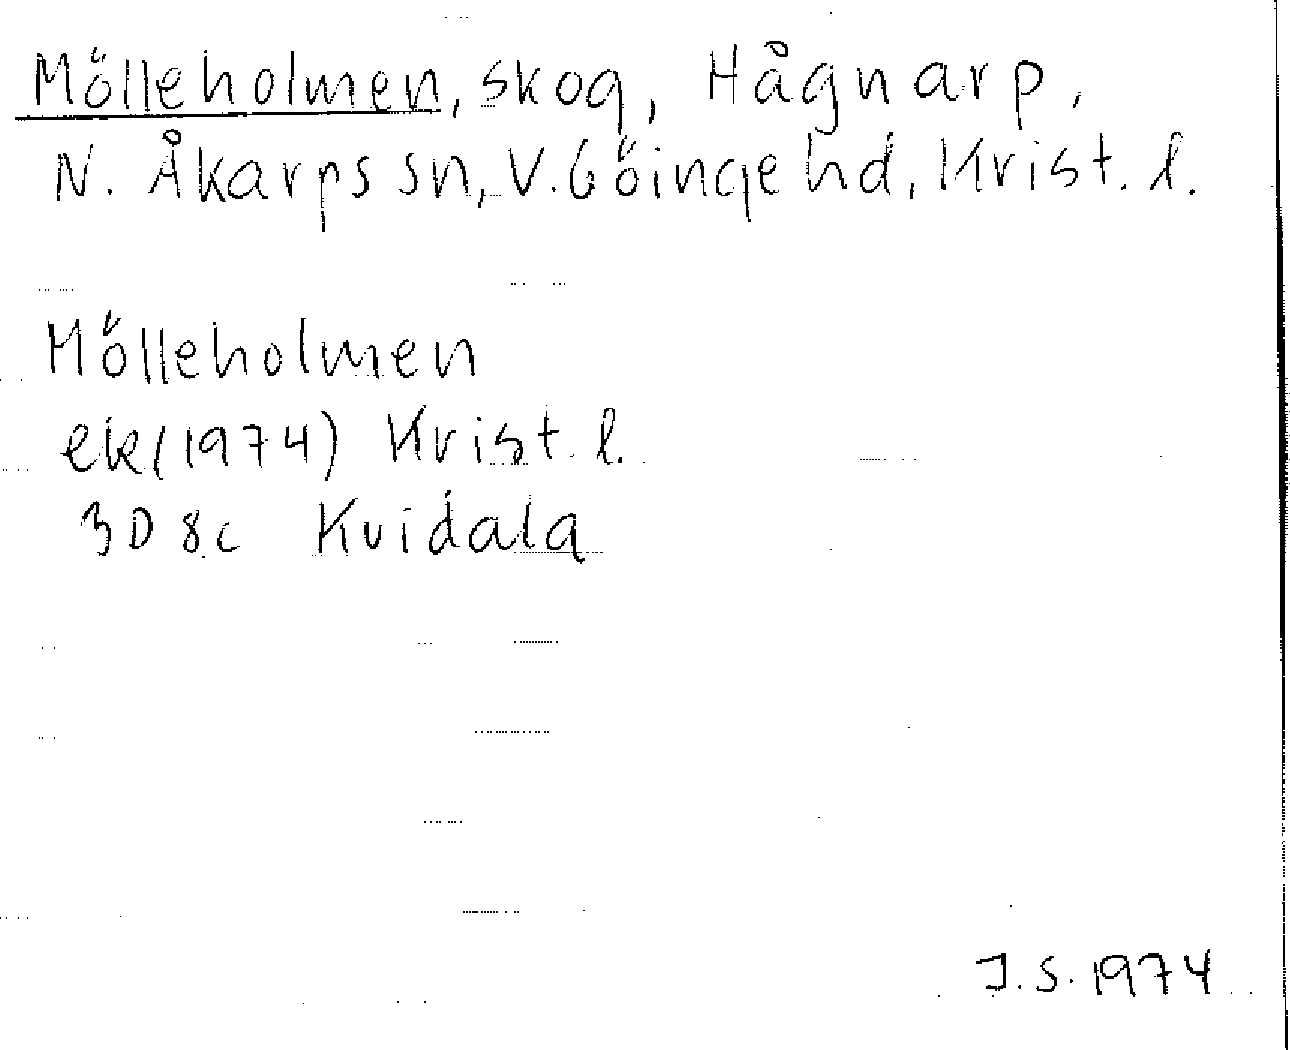 Mölleholmen, skog, Hågnarp,
N. Åkarps sn, V. Göinge hd, Krist. l.
Mölleholmen
ek (1974) Krist. l.
3D 8c Kvidala
J.S. 1974